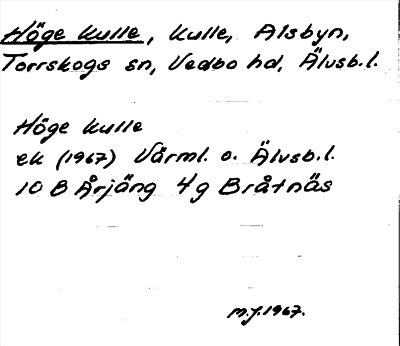 Höge kulle, kulle, Alsbyn,
Torrskogs sn, Vedbo hd, Älvsb.l.
Höge kulle
ek (1967) Värml. o. Älvsb.l.
10 B Årjäng 4g Bråtnäs
m.j.1967.